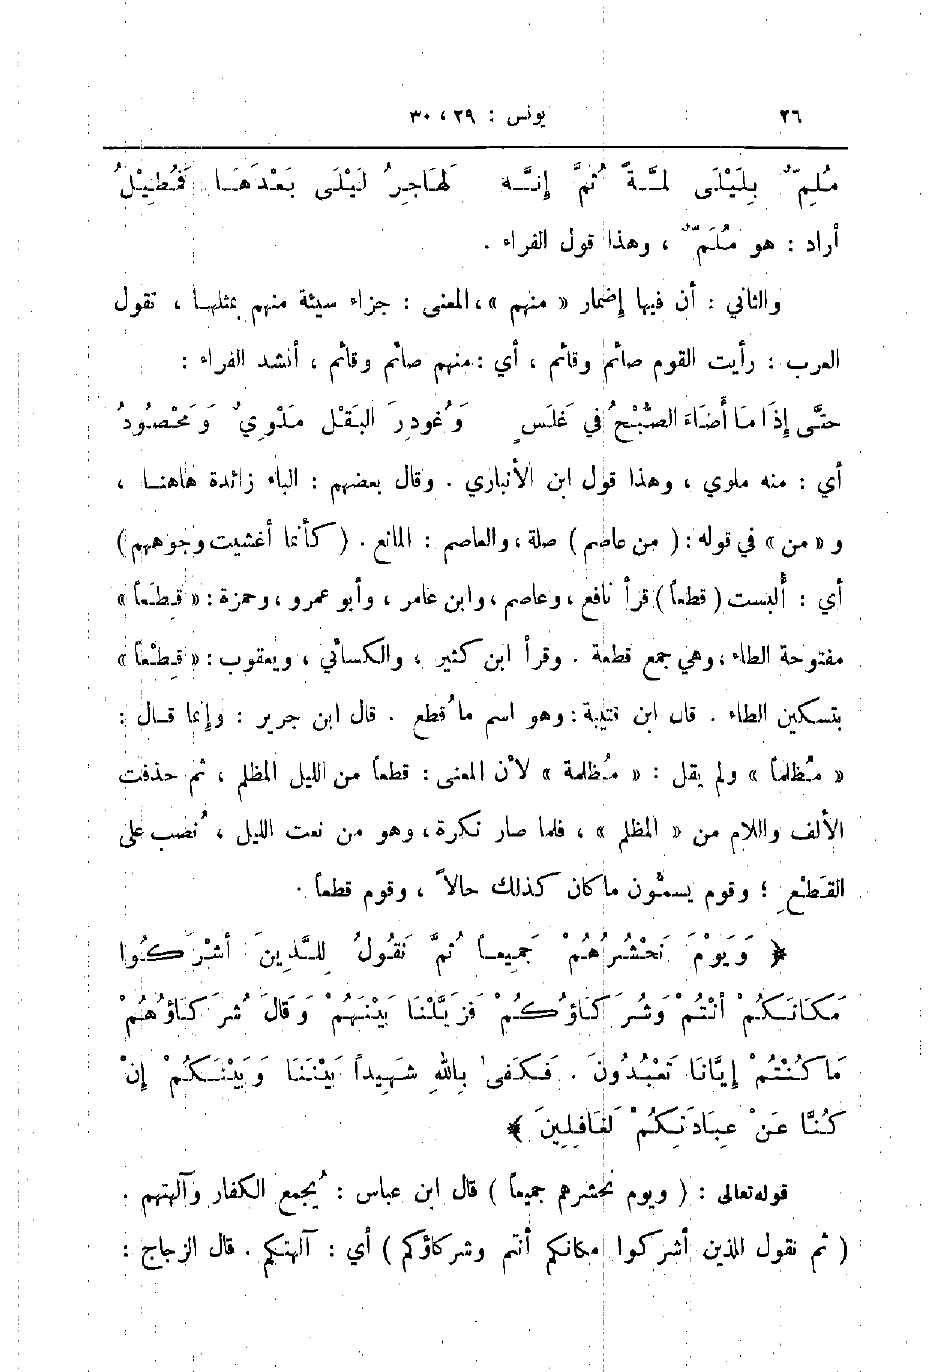 ٢٦ يونس : ٢٩ ، ٣٠
مُلِمٌّ بِلَيْلَى لمَّـةً ثُمَّ إِنَّـه لَهَاجِرُ لَيْلَى بَعْدَهَـا فَمُطِيْلُ
أراد : هو مُلَمٌّ ، وهذا قول الفراء .
والثاني : أن فيها إِضمار « منهم »، المعنى : جزاء سيئة منهم بمثلهـا ، تقول
العرب : رأيت القوم صائم وقائم ، أي : منهم صائم وقائم ، أنشد الفراء :
حتَّى إِذَا مَا أَضَاءَ الصُّبْحُ في غَلَسٍ وَغُودِرَ البَقْلُ مَلْوِيٌّ وَمَحْصُودُ
أي : منه ملوي ، وهذا قول ابن الأنباري . وقال بعضهم : الباء زائدة هاهنـا ،
و « من » في قوله : ( من عاصم ) صلة ، والعاصم : المانع . ( كأنما أغشيت وجوههم )
أي : أُلبست ( قطعاً ) قرأ نافع ، وعاصم ، وابن عامر ، وأبو عمرو ، وحمزة : « قِطَعاً »
مفتوحة الطاء ، وهي جمع قطعة . وقرأ ابن كثير ، والكسائي ، ويعقوب : « قِطْعاً »
بتسكين الطاء . قال ابن قتيبة : وهو اسم ما قُطع . قال ابن جرير : وإِنما قـال :
« مُظلماً » ولم يقل : « مُظلمة » لأن المعنى : قطعاً من الليل المظلم ، ثم حذفت
الألف واللام من « المظلم » ، فلما صار نكرة ، وهو من نعت الليل ، نُصب على
القَطْعِ ؛ وقوم يسمُّون ما كان كذلك حالاً ، وقوم قطعاً .
﴿ وَيَوْمَ نَحْشُرُهُمْ جَمِيعـاً ثُمَّ نَقُولُ لِلَّذِينَ أشْرَكُوا
مَكَانَكُمْ أنْتُمْ وَشُرَكَاؤُكُمْ فَزَيَّلْنَا بَيْنَهُمْ وَقَالَ شُرَكَاؤُهُمْ
مَا كُنْتُمْ إِيَّانَا تَعْبُدُونَ . فَكَفَى بِاللهِ شَهِيداً بَيْنَنَا وَبَيْنَكُمْ إِنْ
كُنَّا عَنْ عِبَادَتِكُمْ لَغَافِلِينَ ﴾
قوله تعالى : ( ويوم نحشرهم جميعاً ) قال ابن عباس : يُجمع الكفار وآلهتهم .
( ثم نقول للذين أشركوا مكانكم أنتم وشركاؤكم ) أي : آلهتكم . قال الزجاج :